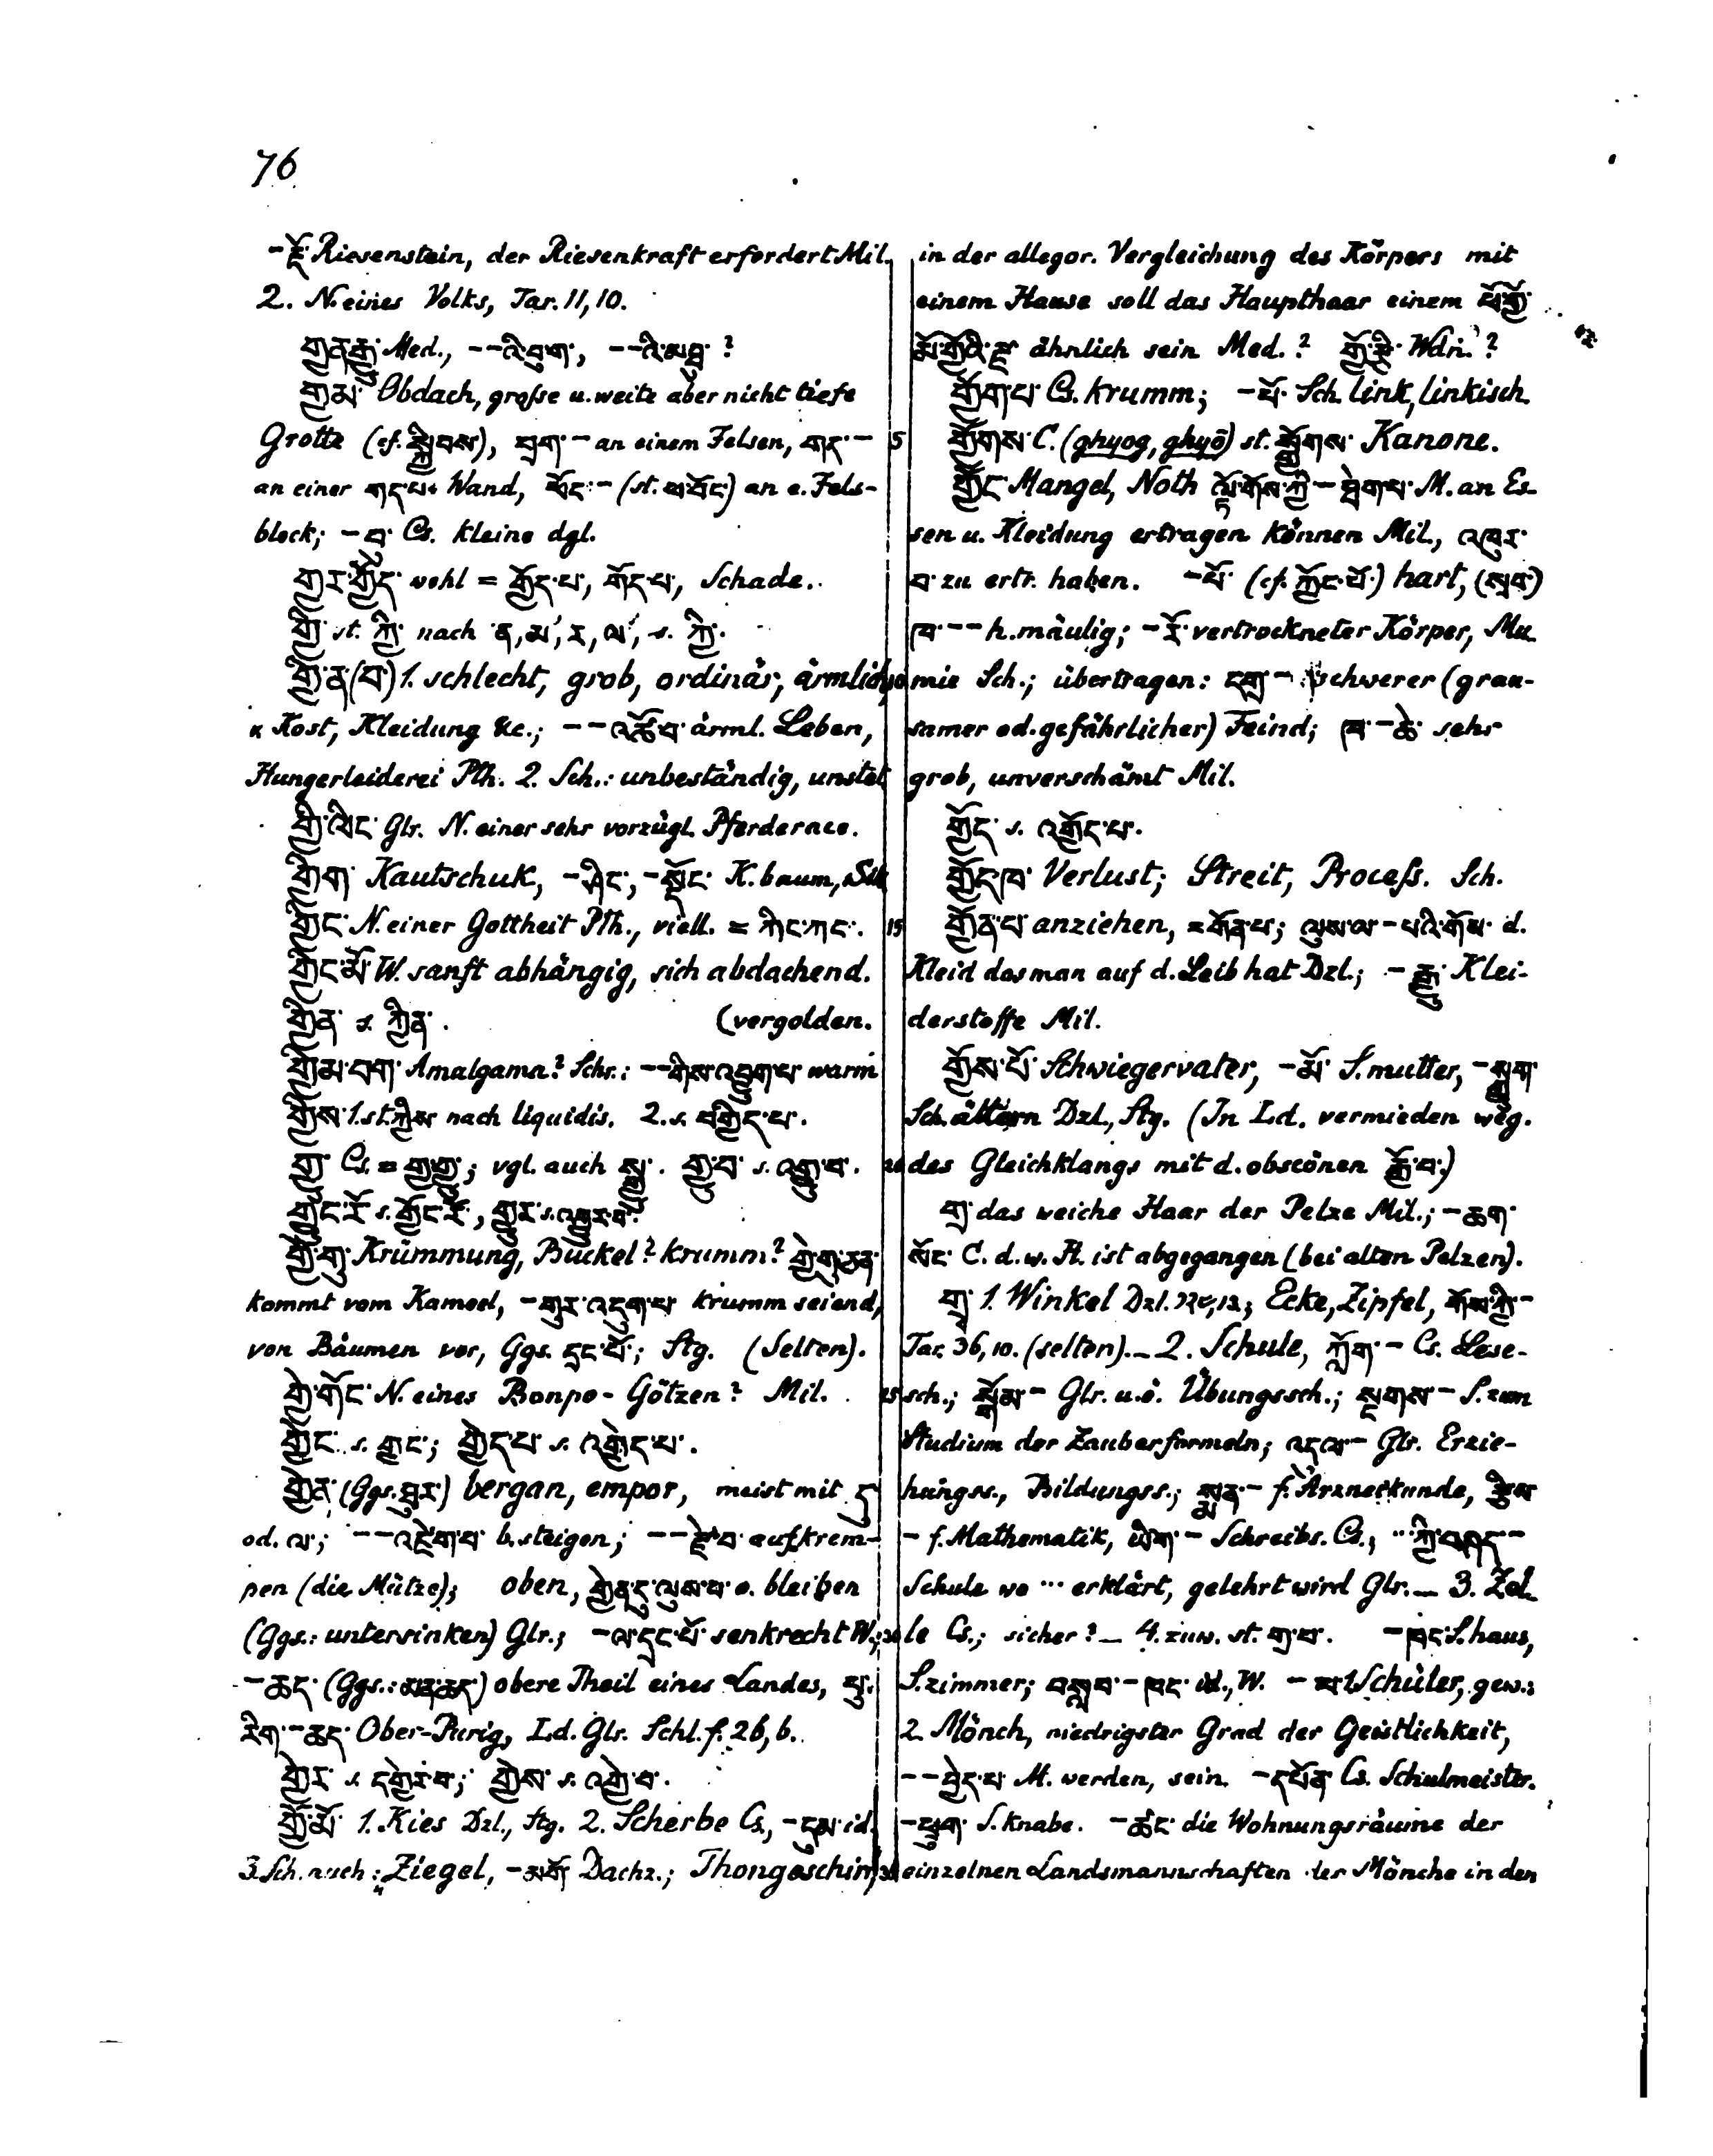 76
-རྡོ་ Riesenstein, der Riesenkraft erfordert Mil.
2. N. eines Volks, Tar. 11, 10.
Med., --འི་བྲག་, ?
གྱམ་ Obdach, grosse u. weite aber nicht tiefe
Grotte (cf. སྐྱིབས), བྲག་ - an einem Felsen, གད་ -
an einer གད་པ་ Wand, ཕོང་ - (st. ཕ་བོང་) an e. Fels-
block; - བུ་ Cs. kleine dgl.
གྱར་གྱོད་ wohl = གྱོད་པ་, གོད་པ་, Schade.
གྱི་ st. ཀྱི་ nach ན, མ, ར, ལ, s. ཀྱི་.
གྱི་ན་(བ་) 1. schlecht, grob, ordinär, ärmlich,
v. Kost, Kleidung &c.; --འཚོ་བ་ ärml. Leben,
Hungerleiderei Pth. 2. Sch.: unbeständig, unstet
གྱི་ལིང་ Glr. N. einer sehr vorzügl. Pferderace.
གྱིག་ Kautschuk, -ཤིང་, -སྡོང་ K. baum, Sik
གྱིང་ N. einer Gottheit Pth., viell. = ཀིང་ཀང་.
གྱིང་མོ་ W. sanft abhängig, sich abdachend.
གྱིན་ s. ཀྱིན་. (vergolden.
གྱིམ་བག་ Amalgama? Schr.: --གིས་འབྱུག་པ་ warm
གྱིས་ 1. st. ཀྱིས་ nach liquidis. 2. s. བགྱིད་པ་.
གྱུ་ Cs. = གྱ་གྱུ་; vgl. auch སྒྱུ་. གྱུ་བ་ s. འགྱུ་བ་.
གྱུང་རོ་ s. གྱོང་རོ་, གྱུར་ s. འགྱུར་བ་.
གྱེ་གུ་ Krümmung, Buckel? krumm? གྱེ་གུ་ཅན་
kommt vom Kameel, -གུར་འདུག་པ་ krumm seiend,
von Bäumen vor, Ggs. དྲང་པོ་; Stg. (Selten).
གྱེ་གོང་ N. eines Bonpo-Götzen? Mil.
གྱེང་ s. གྱང་; གྱེད་པ་ s. འགྱེད་པ་.
གྱེན་ (Ggs. ཐུར་) bergan, empor, meist mit དུ་
od. ལ་; --འཛེག་པ་ b. steigen; --རྫེ་བ་ aufkrem-
pen (die Mütze); oben, གྱེན་དུ་ལུས་པ་ o. bleiben
(Ggs.: untersinken) Glr.; -ལ་དྲང་པོ་ senkrecht W.;
-ཆད་ (Ggs.: མན་ཆད་) obere Theil eines Landes, པུ་
རིག་-ཆད་ Ober-Purig, Ld. Glr. Schl. f. 26, b.
གྱེར་ s. དགྱེར་བ་; གྱེས་ s. འགྱེ་བ་.
གྱོ་མོ་ 1. Kies Dzl., Stg. 2. Scherbe Cs., -དུམ་ id.
3. Sch. auch: Ziegel, -མགོ་ Dachz.; Thongeschirr,
in der allegor. Vergleichung des Körpers mit
einem Hause soll das Haupthaar einem
ähnlich sein Med.? Wdn.?
གྱོག་པ་ Cs. krumm; -པོ་ Sch. link, linkisch.
5 གྱོགས་ C. (ghyog, ghyō) st. སྒྱོགས་ Kanone.
གྱོང་ Mangel, Noth ལྟོ་གོས་ཀྱི་ - ཐེག་པ་ M. an Es-
sen u. Kleidung ertragen können Mil., འཁུར་
བ་ zu ertr. haben. -པོ་ (cf. ཀྱོང་པོ་) hart,
ཁ་-- h. mäulig; -རོ་ vertrockneter Körper, Mu-
mie Sch.; übertragen: དགྲ་- schwerer (grau-
samer od. gefährlicher) Feind; ཁ་-ཆེ་ sehr
grob, unverschämt Mil.
གྱོད་ s. འགྱོད་པ་.
གྱོད་ཁ་ Verlust; Streit, Process. Sch.
15 གྱོན་པ་ anziehen, = གོན་པ་; ལུས་ལ་-པའི་གོས་ d.
Kleid das man auf d. Leib hat Dzl.; -རྒྱུ་ Klei-
derstoffe Mil.
གྱོས་པོ་ Schwiegervater, -མོ་ S. mutter, -སྒྱུག་
Sch. ältern Dzl., Stg. (In Ld. vermieden weg.
20 des Gleichklangs mit d. obscönen རྒྱོ་བ་)
གྲ་ das weiche Haar der Pelze Mil.; -ཆག་
སོང་ C. d. w. H. ist abgegangen (bei alten Pelzen).
གྲྭ་ 1. Winkel Dzl. Ecke, Zipfel, གོས་ཀྱི་-
Tar. 36, 10. (selten). _ 2. Schule, ཀློག་ - Cs. Lese-
25 sch.; སྒོམ་- Glr. u. ö. Übungssch.; སྔགས་- S. zum
Studium der Zauberformeln; འདུལ་- Glr. Erzie-
hungss., Bildungss.; སྨན་- f. Arzneikunde, རྩིས་
- f. Mathematik, ཡིག་ - Schreibs. Cs., ...ཀྱི་བཤད་-
Schule wo ... erklärt, gelehrt wird Glr. _ 3. Zel-
le Cs.; sicher? _ 4. zuw. st. གྲ་བ་. -ཁང་ S. haus,
S. zimmer; བསླབ་-ཁང་ id., W. -པ་ 1 Schüler, gew.:
2. Mönch, niedrigster Grad der Geistlichkeit,
--བྱེད་པ་ M. werden, sein. -དཔོན་ Cs. Schulmeister.
-ཕྲུག་ S. knabe. -ཚང་ die Wohnungsräume der
35 einzelnen Landsmannschaften der Mönche in den